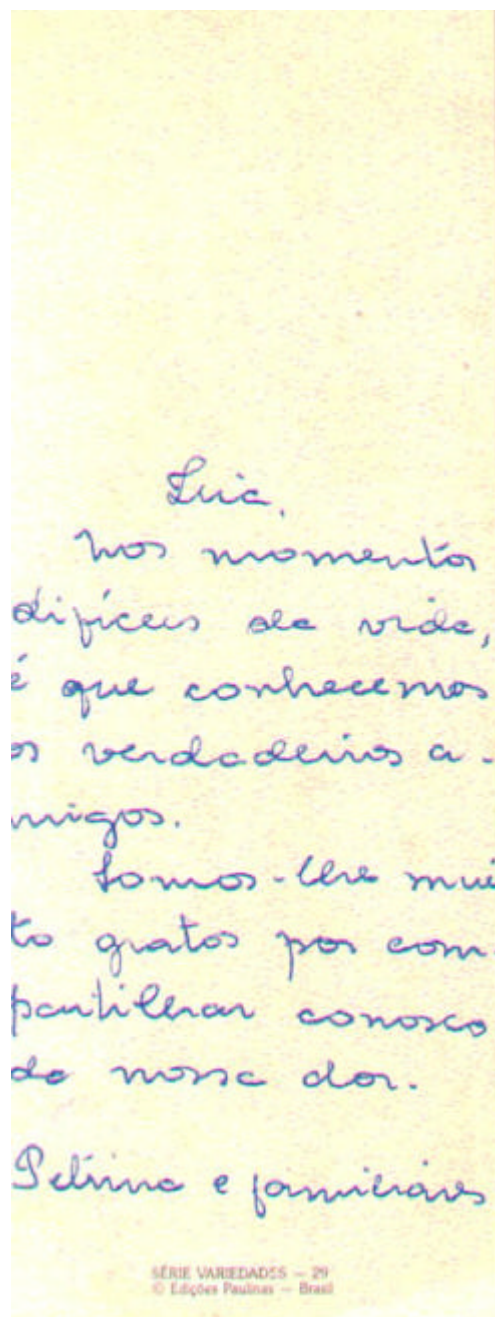 Luia,
nos momentos
difíceis da vida,
é que conhecemos
os verdadeiros a-
migos.
Somos-lhe mui
to gratos por com-
partilhar conosco
da nossa dor.
Petrina e familiares
SÉRIE VARIEDADES — 29
© Edições Paulinas — Brasil